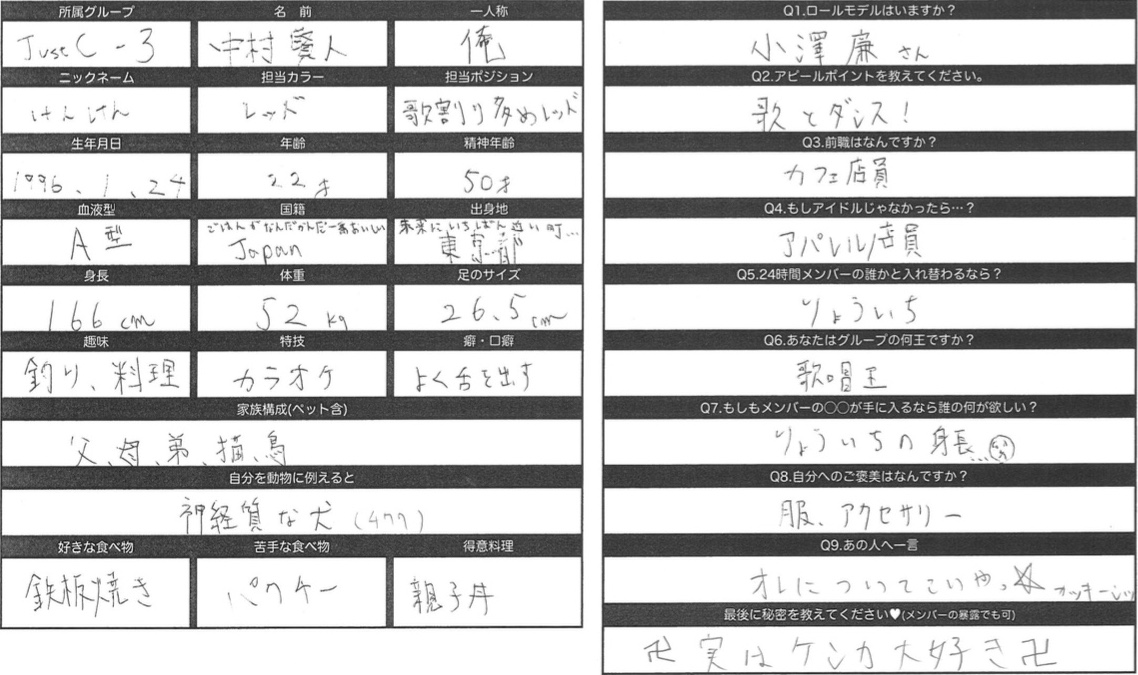 所属グループ 名 前 一人称
JustC-3 中村賢人 俺
ニックネーム 担当カラー 担当ポジション
けんけん レッド 歌割り多めレッド
生年月日 年齢 精神年齢
1996.1.24 22才 50才
血液型 国籍 出身地
ごはんがなんだかんだ一番おいしい 未来にいちばん近い町…
A型 Japan 東京都
身長 体重 足のサイズ
166cm 52kg 26.5cm
趣味 特技 癖・口癖
釣り、料理 カラオケ よく舌を出す
家族構成(ペット含)
父、母、弟、猫、鳥
自分を動物に例えると
神経質な犬(チワワ)
好きな食べ物 苦手な食べ物 得意料理
鉄板焼き パクチー 親子丼
Q1.ロールモデルはいますか?
小澤廉さん
Q2.アピールポイントを教えてください。
歌とダンス!
Q3.前職はなんですか?
カフェ店員
Q4.もしアイドルじゃなかったら…?
アパレル店員
Q5.24時間メンバーの誰かと入れ替わるなら?
りょういち
Q6.あなたはグループの何王ですか?
歌唱王
Q7.もしもメンバーの○○が手に入るなら誰の何が欲しい?
りょういちの身長…
Q8.自分へのご褒美はなんですか?
服、アクセサリー
Q9.あの人へ一言
オレについてこいやっ☆
最後に秘密を教えてください♥(メンバーの暴露でも可)
卍実はケンカ大好き卍